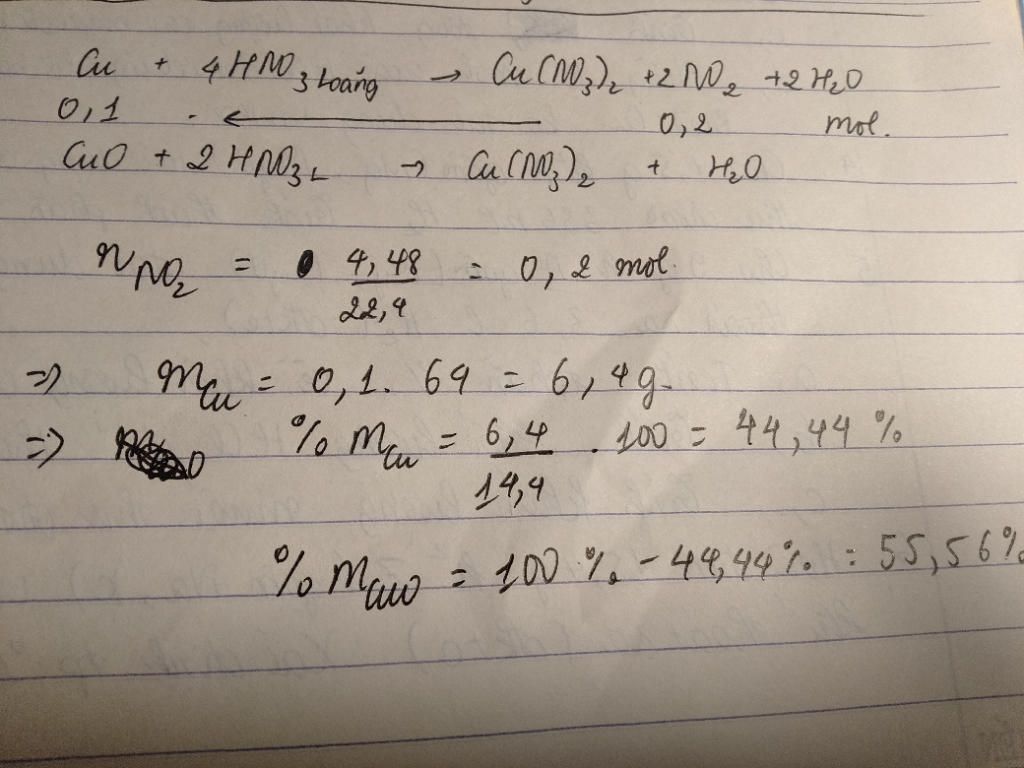 Cu + 4HNO3 loãng → Cu(NO3)2 + 2NO2 + 2H2O
0,1 ← 0,2 mol.
CuO + 2HNO3L → Cu(NO3)2 + H2O
nNO2 = 4,48/22,4 = 0,2 mol.
=> mCu = 0,1. 64 = 6,4g.
=> % mCu = 6,4/14,4 . 100 = 44,44 %
% mCuO = 100 % - 44,44% = 55,56%